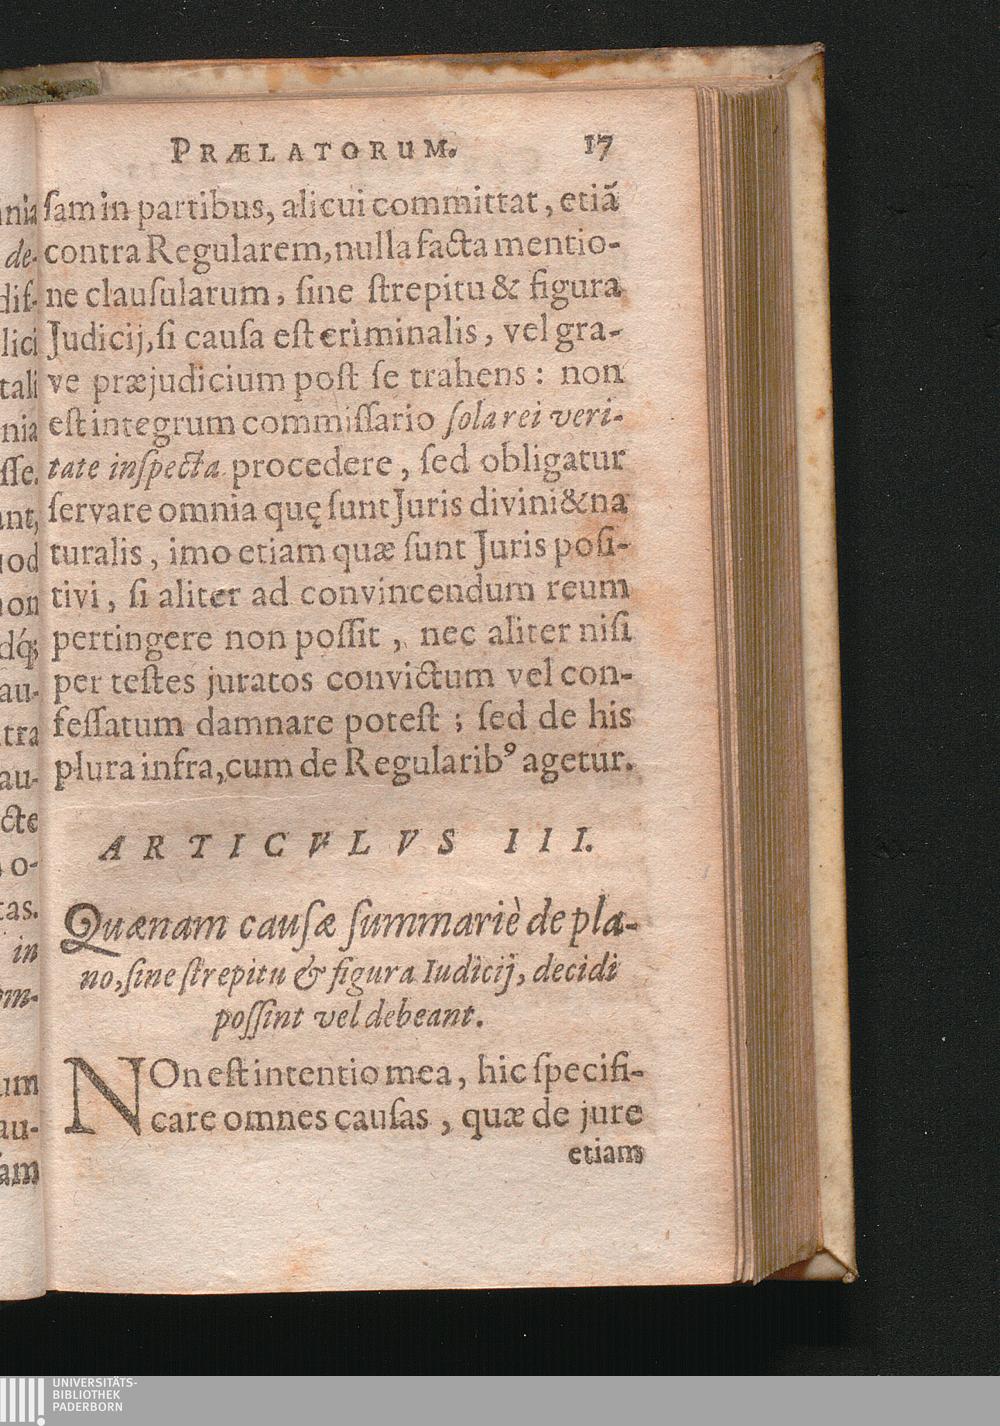 PRÆLATORUM. 17
ſam in partibus, alicui committat, etiã
contra Regularem, nulla facta mentio-
ne clauſularum, ſine ſtrepitu & figura
Judicij, ſi cauſa eſt criminalis, vel gra-
ve præjudicium poſt ſe trahens: non
eſt integrum commiſſario ſola rei veri-
tate inſpecta procedere, ſed obligatur
ſervare omnia quę ſunt Juris divini & na
turalis, imo etiam quæ ſunt Juris poſi-
tivi, ſi aliter ad convincendum reum
pertingere non poſſit, nec aliter niſi
per teſtes juratos convictum vel con-
feſſatum damnare poteſt; ſed de his
plura infra, cum de Regularibꝰ agetur.
ARTICVLVS III.
Quænam cauſæ ſummariè de pla-
no, ſine ſtrepitu & figura Iudicij, decidi
poſſint vel debeant.
NOn eſt intentio mea, hic ſpecifi-
care omnes cauſas, quæ de jure
etiam
nia
de-
diſ-
lici
tali
nia
ſſe.
ant,
uod
non
dq́;
au-
tra
au-
cte
o-
tas.
in
om-
um
au-
ſam
UNIVERSITÄTS-
BIBLIOTHEK
PADERBORN